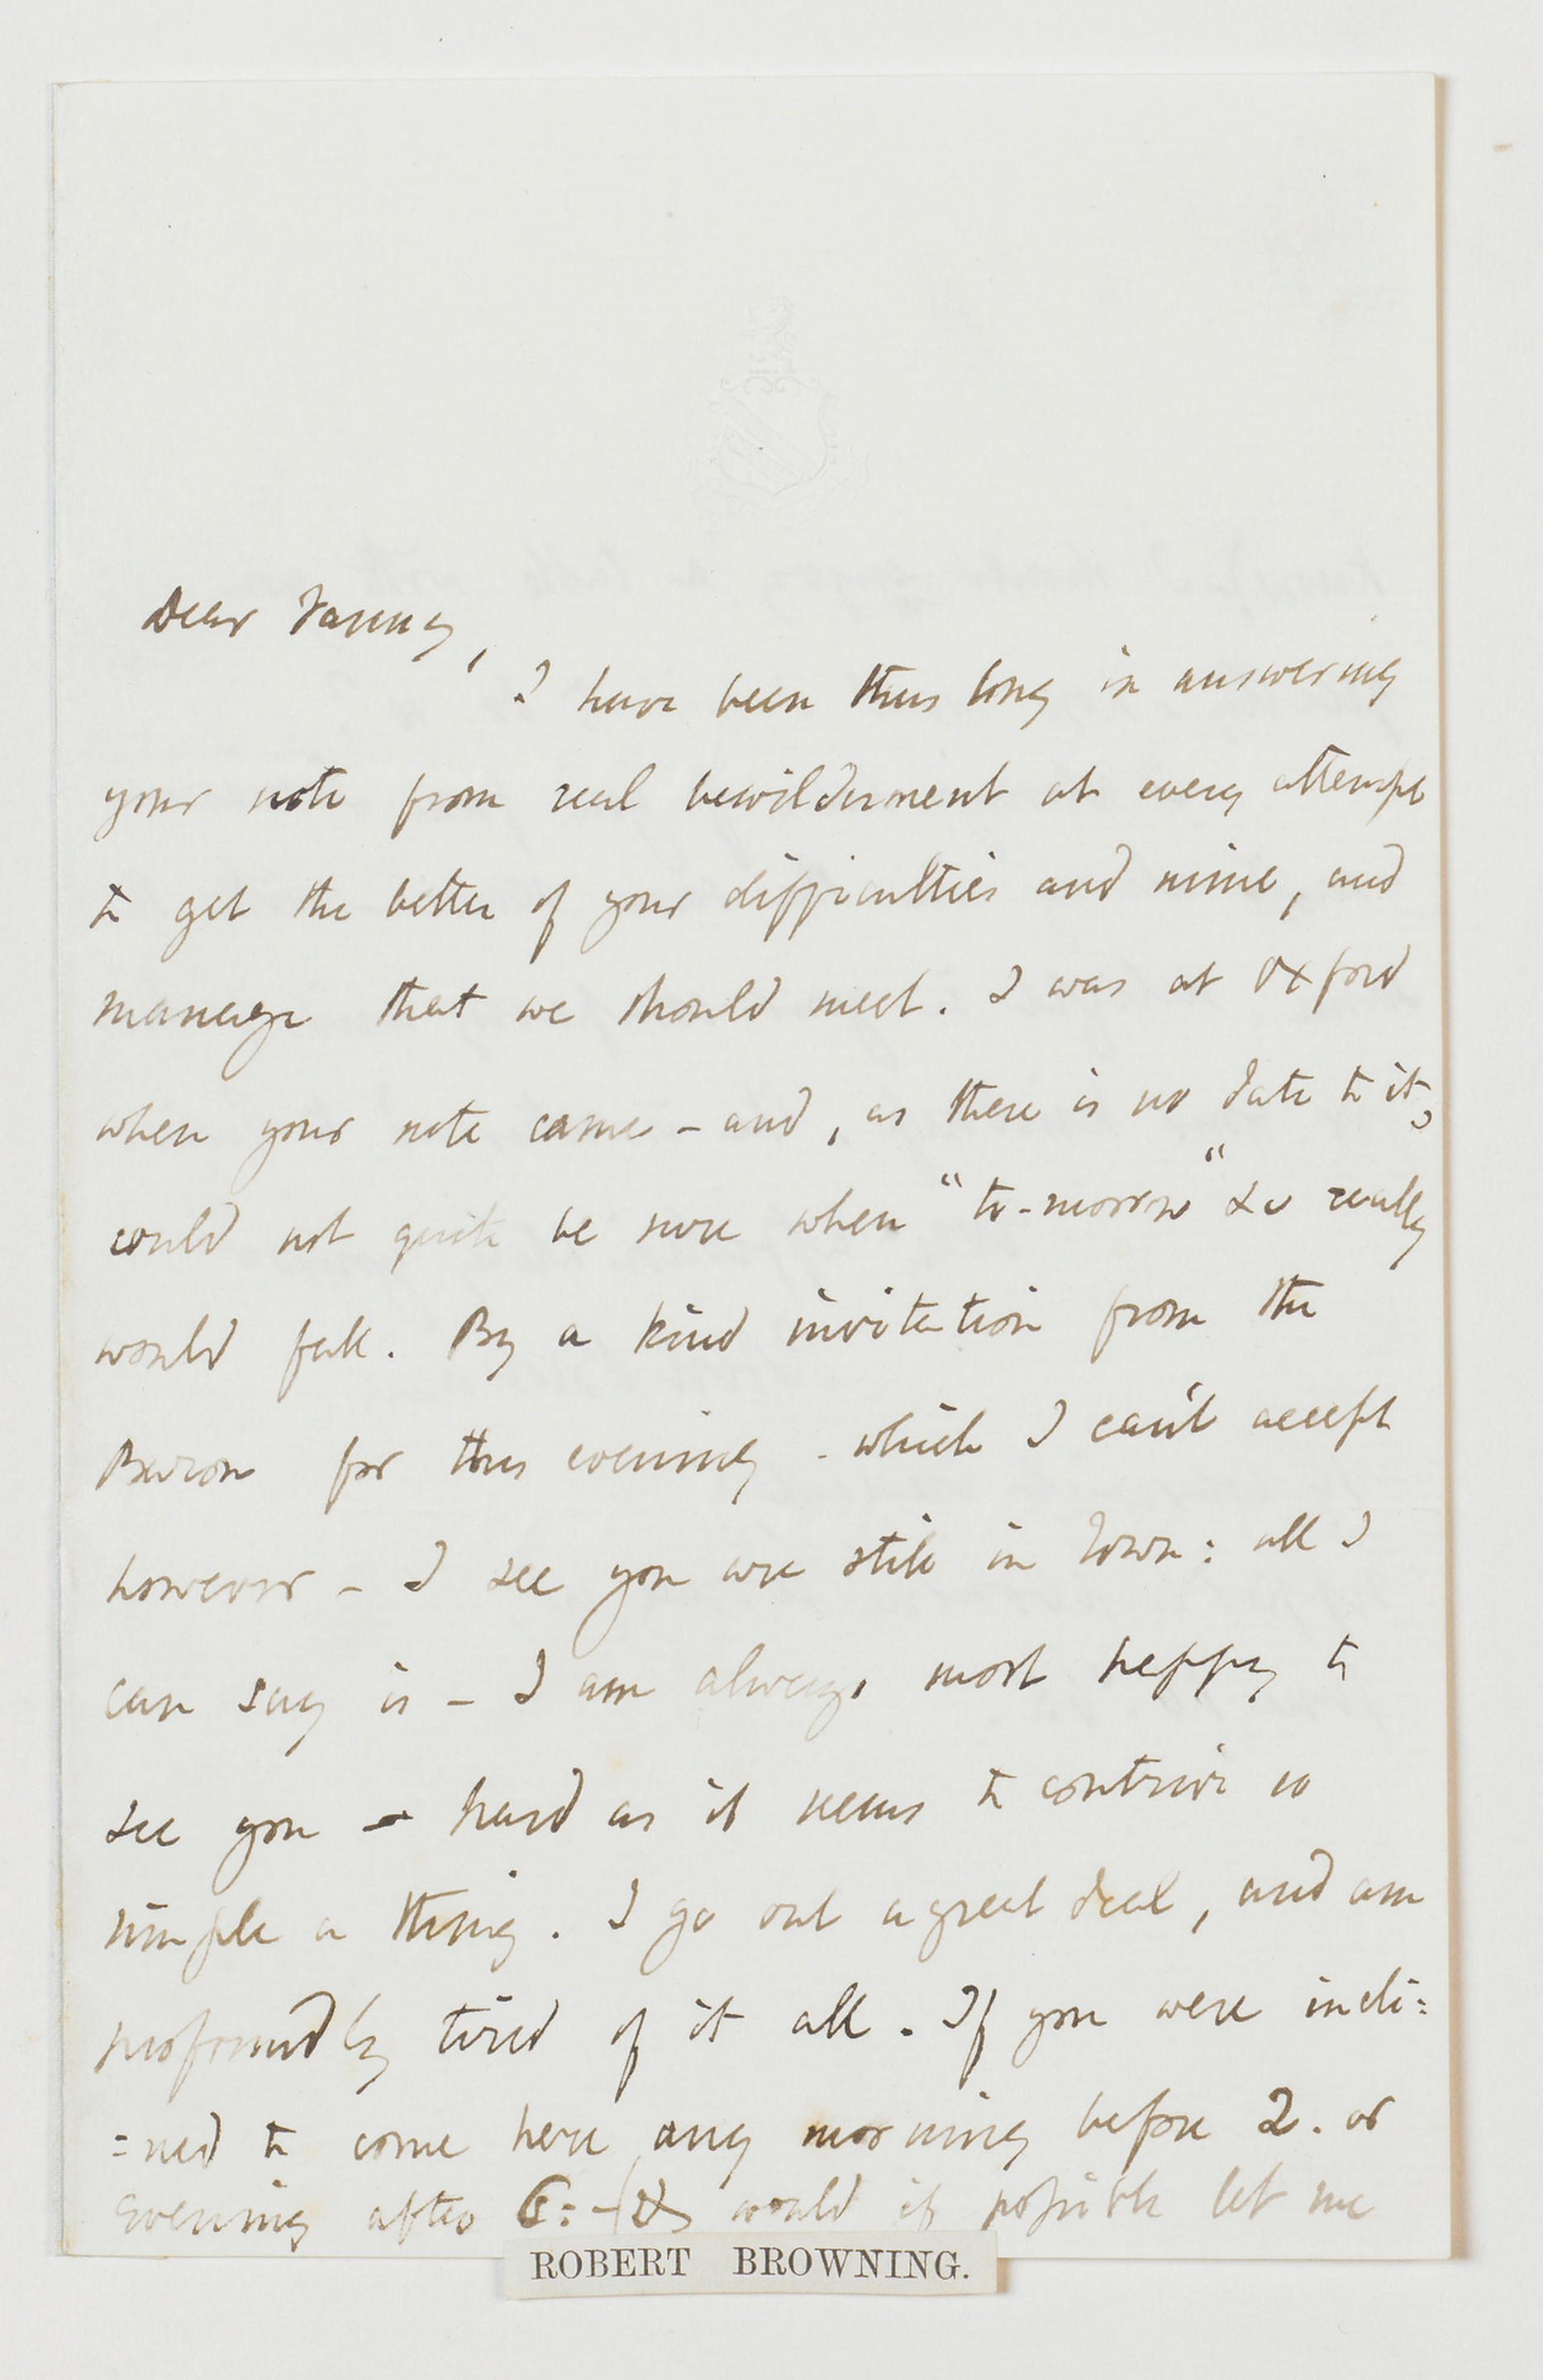 Dear Fanny,
I have been thus long in answering
your note from real bewilderment at every attempt
to get the better of your difficulties and mine, and
manage that we should meet. I was at Oxford
when your note came - and, as there is no date to it,
could not quite be sure when "to-morrow" &c really
would fall. By a kind invitation from the
Baron for this evening - which I can't accept
however - I see you are still in Town: all I
can say is - I am always most happy to
see you - hard as it seems to contrive so
simple a thing. I go out a great deal, and am
profoundly tired of it all. If you were incli:
:ned to come here any morning before 2. or
evening after 6: - (& would if possible let me
ROBERT BROWNING.